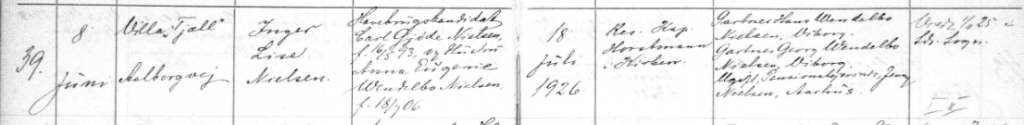 39.
8.
Juni
Villa „Fjell"
Aalborgvej
Inger
Lise
Nielsen.
Havebrugskandidat
Carl Gjöde Nielsen
f. 16/5 93, og Hustru
Anna Eugenie
Wendelbo Nielsen.
f. 18/7 06
18
Juli
1926.
Res. Kap.
Horstmann
i Kirken
Gartner Hans Wendelbo
Nielsen, Viborg.
Gartner Georg Wendelbo
Nielsen, Viborg.
Ugift, Jenny
Nielsen, Aarhus.
25
Sogn.